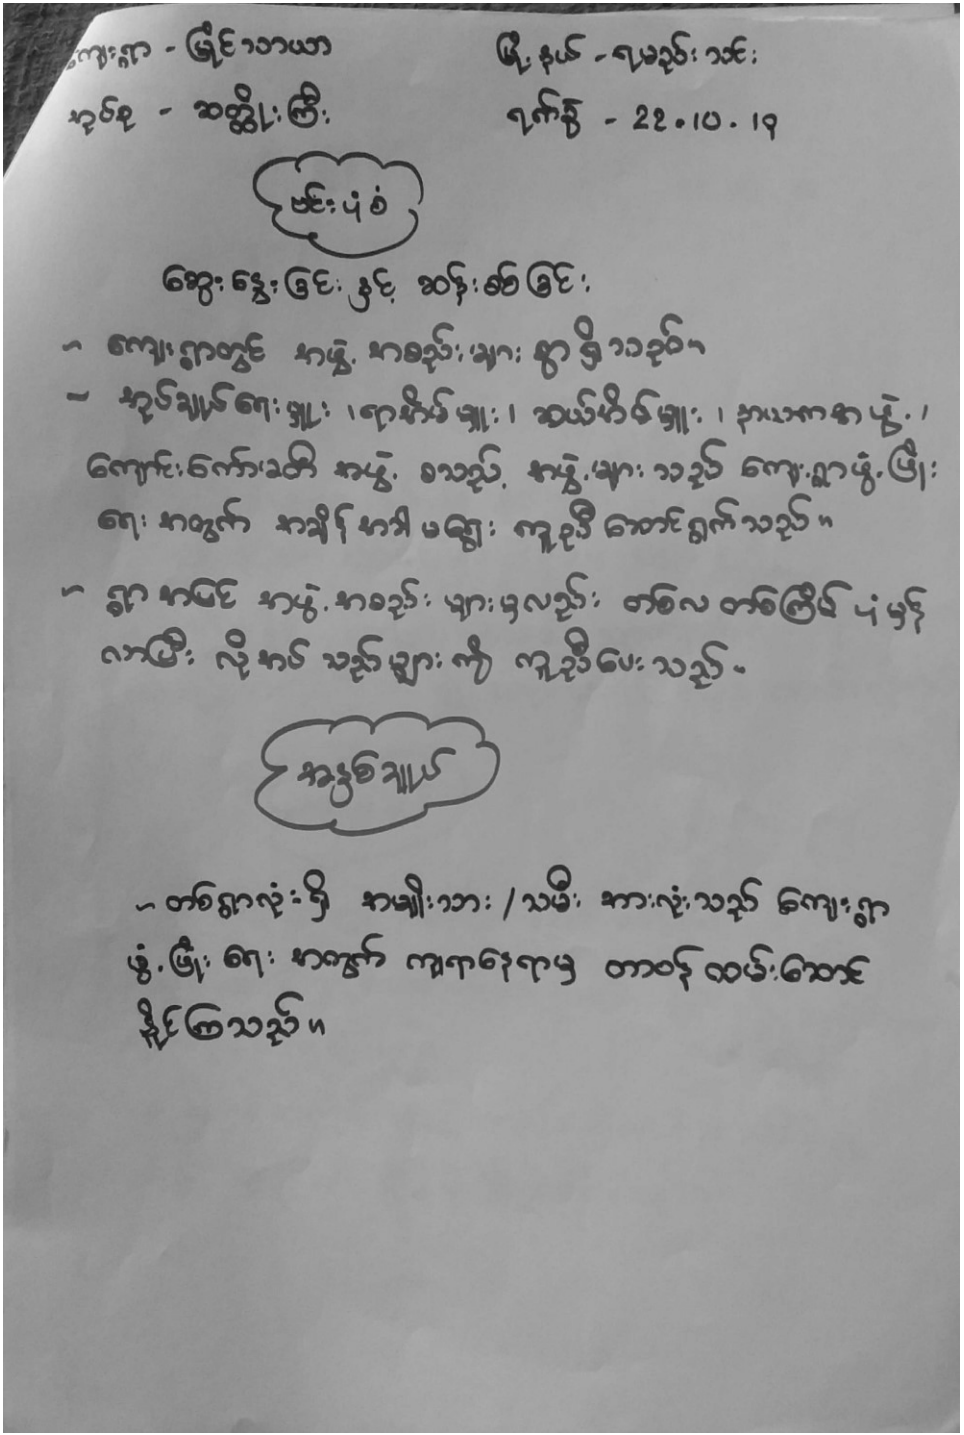 ကျေးရွာ - မြိုင်သာယာ မြို့နယ် - ရမည်းသင်း
အုပ်စု - ဆတ္ထိုးကြီး ရက်စွဲ - 22.10.19
ဗင်းပုံစံ
ဆွေးနွေးခြင်းနှင့် ဆန်းစစ်ခြင်း
- ကျေးရွာတွင် အဖွဲ့အစည်းများစွာရှိသည်။
- အုပ်ချုပ်ရေးမှူး၊ ရာအိမ်မှူး၊ ဆယ်အိမ်မှူး၊ နာယကအဖွဲ့၊
ကျောင်းကော်မတီ အဖွဲ့ စသည့် အဖွဲ့များသည် ကျေးရွာဖွံ့ဖြိုး
ရေးအတွက် အချိန်အခါမရွေး ကူညီဆောင်ရွက်သည်။
- ရွာအပြင် အဖွဲ့အစည်းများမှလည်း တစ်လတစ်ကြိမ် ပုံမှန်
လာပြီး လိုအပ်သည်များကို ကူညီပေးသည်။
အနှစ်ချုပ်
- တစ်ရွာလုံးရှိ အမျိုးသား/သမီး အားလုံးသည် ကျေးရွာ
ဖွံ့ဖြိုးရေးအတွက် ကျရာနေရာမှ တာဝန်ထမ်းဆောင်
နိုင်ကြသည်။